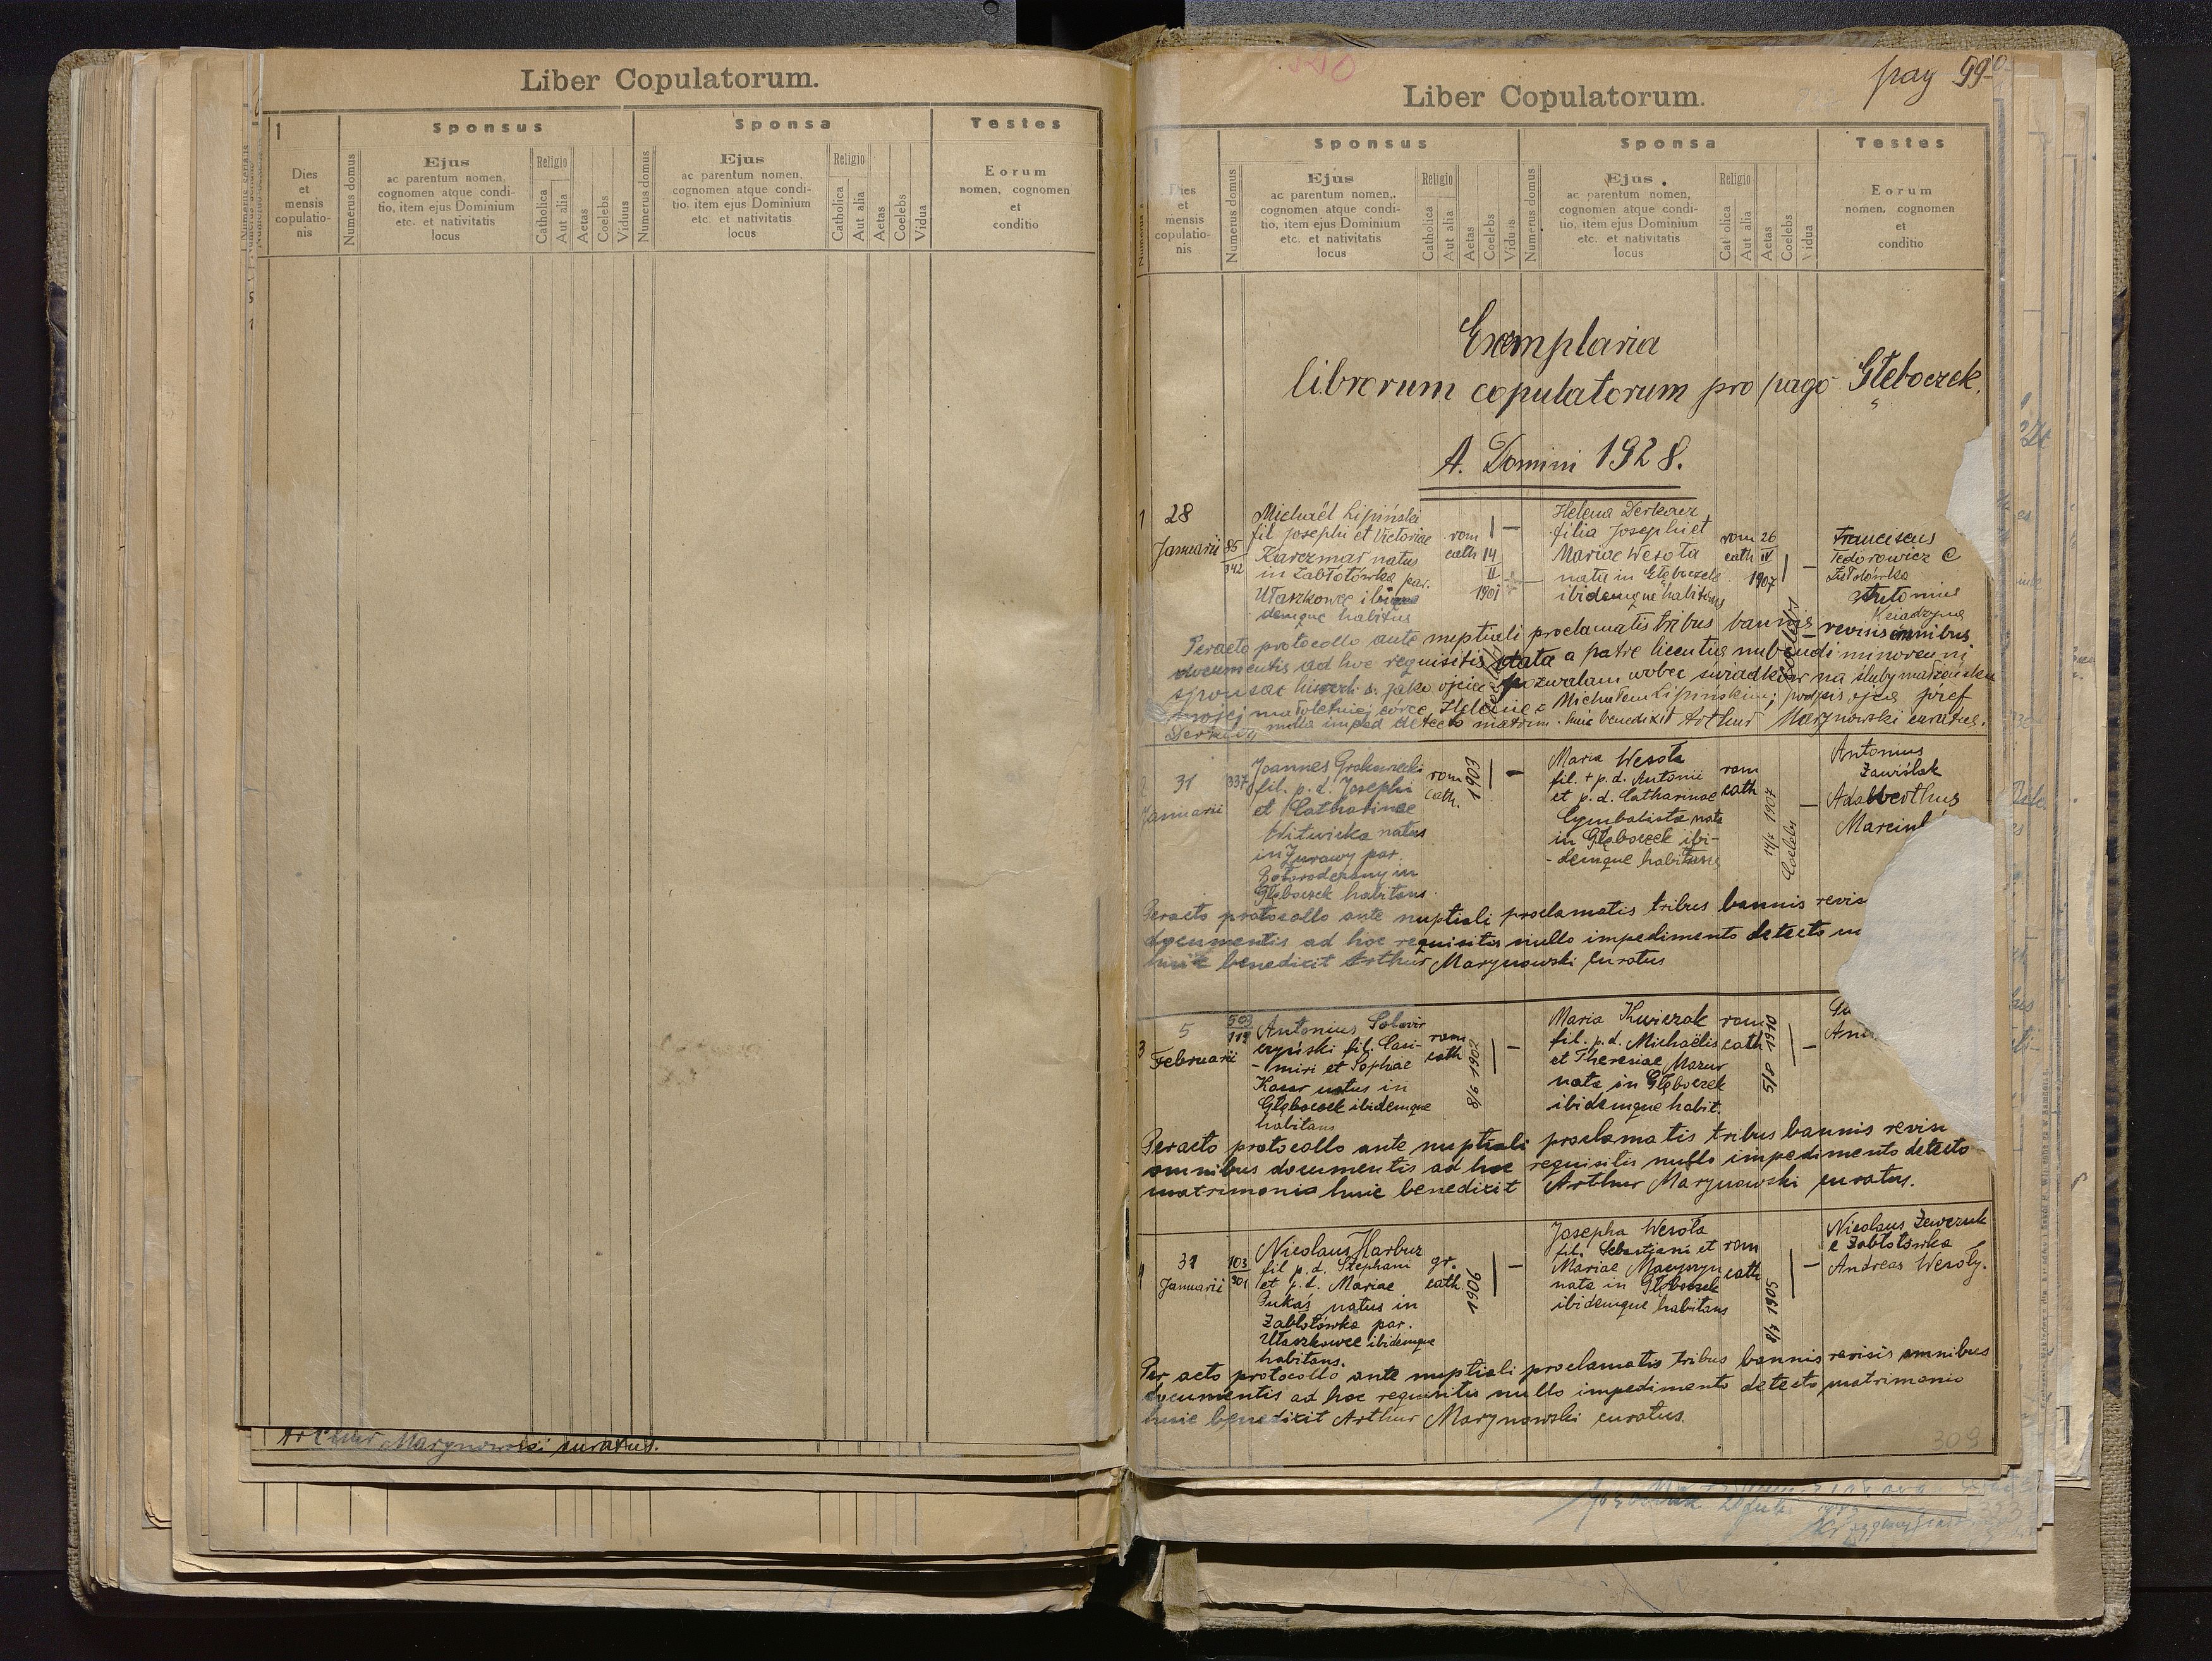 Liber Copulatorum.
1
Dies
et
mensis
copulatio-
nis
Numerus domus
Sponsus
Ejus
ac parentum nomen,
cognomen atque condi-
tio, item ejus Dominium
etc. et nativitatis
locus
Religio
Catholica
Aut alia
Aetas
Coelebs
Viduus
Numerus domus
Sponsa
Ejus
ac parentum nomen,
cognomen atque condi-
tio, item ejus Dominium
etc. et nativitatis
locus
Religio
Catholica
Aut alia
Aetas
Coelebs
Vidua
Testes
Eorum
nomen, cognomen
et
conditio
Arthur Marynowski curatus.
pag 99
Liber Copulatorum.
Dies
et
mensis
copulatio-
nis
Numerus domus
Sponsus
Ejus
ac parentum nomen,
cognomen atque condi-
tio, item ejus Dominium
etc. et nativitatis
locus
Religio
Catholica
Aut alia
Aetas
Coelebs
Viduus
Numerus domus
Sponsa
Ejus
ac parentum nomen,
cognomen atque condi-
tio, item ejus Dominium
etc. et nativitatis
locus
Religio
Catholica
Aut alia
Aetas
Coelebs
Vidua
Testes
Eorum
nomen, cognomen
et
conditio
Exemplaria
librorum copulatorum pro pago Głęboczek.
A. Domini 1928.
1
28
Januarii
85
342
Michaël Lipiński
fil Josephi et Victoriae
Karczmar natus
in Zabłotówka par.
Ułaszkowce
demque habitus
rom
cath
14
II
1901
Helena Derkacz
filia Josephi et
Mariae Wesoła
nata in Głęboczek
ibidemque habitans
rom
cath
26
IV
1907
Franciscus
Tedorowicz
Antonius
Peracto protocollo ante nuptiali proclamatis tribus bannis revisis omnibus
documentis ad hoc requisitis data a patre licentia nubendi minoren
sponsae jako ojciec pozwalam wobec świadków na śluby małżeńskie
mojej małoletniej córce Helenie z Michałem Lipińskim; podpis ojca Józef
nullo imped detecto matrim. huic benedixit Arthur Marynowski curatus.
2
31
Januarii
337
Joannes
fil. p. d. Josephi
et Catharinae
Witwicka natus
in Żurawy par.
Bohorodczany in
Głęboczek habitans
rom
cath.
1903
Maria Wesoła
fil. + p. d. Antonii
et p. d. Catharinae
Cymbalista nata
in Głęboczek ibi-
-demque habitans
rom
cath
14/7 1907
Coelebs
Antonius
Zawiślak
Adalberthus
Peracto protocollo ante nuptiali proclamatis tribus bannis revis
documentis ad hoc requisitis nullo impedimento detecto m
huic benedixit Arthur Marynowski curatus
3
5
Februarii
503
119
Antonius Solowi
czyński fil. Casi-
-miri et Sophiae
natus in
Głęboczek ibidemque
habitans
rom
cath
8/6 1902
Maria Kwiczak
fil. p. d. Michaëlis
et Theresiae Mazur
nata in Głęboczek
ibidemque habit.
rom
cath
5/8 1910
Peracto protocollo ante nuptiali proclamatis tribus bannis revisi
omnibus documentis ad hoc requisitis nullo impedimento detecto
matrimonio huic benedixit Arthur Marynowski curatus.
4
31
Januarii
103
301
Nicolaus Harbuz
fil p. d. Stephani
et p. d. Mariae
Pukaś natus in
Zabłotówka par.
Ułaszkowce ibidemque
habitans.
gr.
cath.
1906
Josepha Wesoła
fil. Sebastjani et
Mariae
nata in Głęboczek
ibidemque habitans
rom
cath
8/7 1905
Nicolaus Żewczuk
e Zabłotówka
Andreas Wesoły.
Per acto protocollo ante nuptiali proclamatis tribus bannis revisis omnibus
documentis ad hoc requisitis nullo impedimento detecto matrimonio
huic benedixit Arthur Marynowski curatus.
309